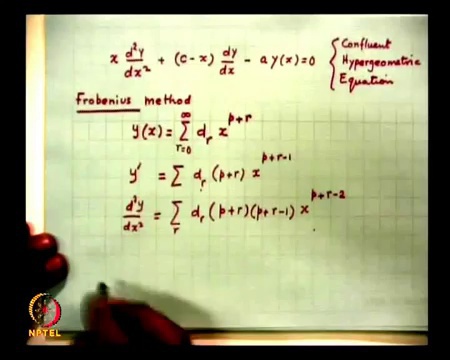 x d²y/dx² + (c-x) dy/dx - a y(x) = 0 { Confluent Hypergeometric Equation
Frobenius method
y(x) = ∑_{r=0}^{∞} d_r x^{p+r}
y' = ∑ d_r (p+r) x^{p+r-1}
d²y/dx² = ∑_r d_r (p+r)(p+r-1) x^{p+r-2}
NPTEL